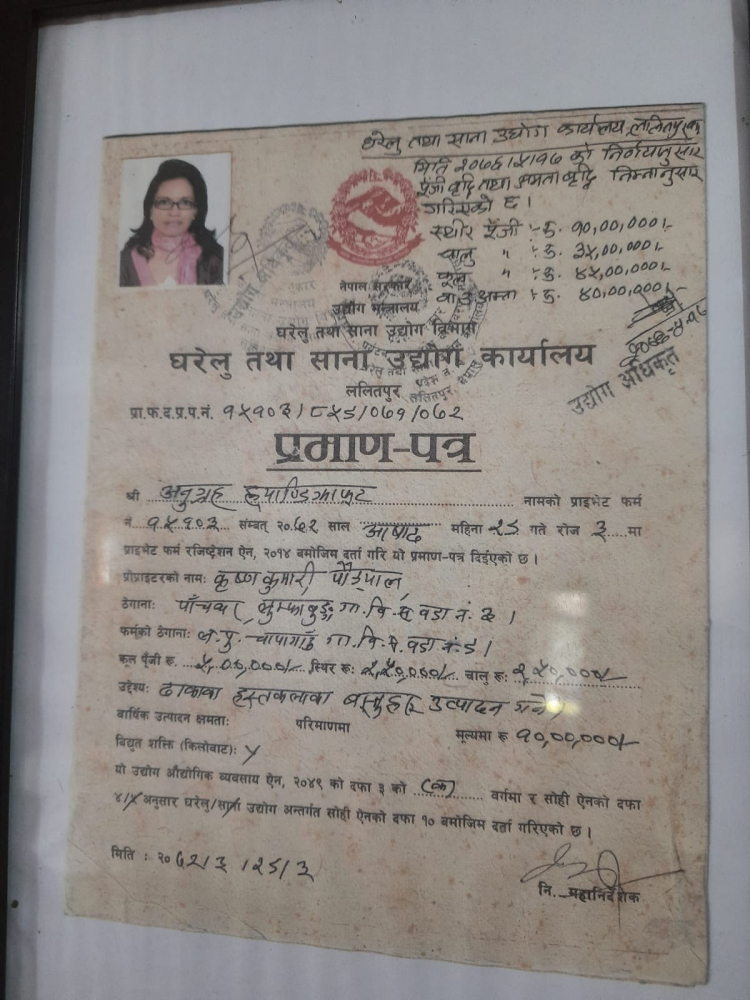 घरेलु तथा साना उद्योग कार्यालय, ललितपुरका
मिति २०७६।५।१७ को निर्णयनुसार
पूँजी वृद्धि तथा क्षमता वृद्धि निम्नानुसार
गरिएको छ।
स्थीर पूँजी :- रु. १०,००,०००।-
चालु " :- रु. ३५,००,०००।-
कूल " :- रु. ४५,००,०००।-
वा.उ.क्षमता :- रु. ४०,००,०००।-
उद्योग अधिकृत
नेपाल सरकार
उद्योग मन्त्रालय
घरेलु तथा साना उद्योग विभाग
घरेलु तथा साना उद्योग कार्यालय
ललितपुर
प्रा.फ.द.प्र.प.नं. १५१०३/८५८/०६१/०६२
प्रमाण-पत्र
श्री अनुग्रह ह्याण्डिक्राफ्ट नामको प्राइभेट फर्म
नं १५१०३ सम्बत् २०६२ साल आषाढ महिना २८ गते रोज ३ मा
प्राइभेट फर्म रजिष्ट्रेशन ऐन, २०१४ बमोजिम दर्ता गरि यो प्रमाण-पत्र दिईएको छ।
प्रोप्राइटरको नामः कृष्ण कुमारी पौड्याल
ठेगानाः पाँचथर, लुम्फाबुङ गा.वि.स. वडा नं. ३।
फर्मको ठेगानाः ल.पु. चापागाउँ गा.वि.स. वडा नं. ८।
कूल पूँजी रु. ५,००,०००/- स्थिर रुः २,५०,०००/- चालु रुः २,५०,०००/-
उद्देश्यः ढाकाका हस्तकलाका बस्तुहरु उत्पादन गर्ने।
बार्षिक उत्पादन क्षमताः परिमाणमा मूल्यमा रु १०,००,०००/-
विद्युत शक्ति (किलोवाट): ५
यो उद्योग औद्योगिक व्यवसाय ऐन, २०४९ को दफा ३ को (क) वर्गमा र सोही ऐनको दफा
४/५ अनुसार घरेलु/साना उद्योग अन्तर्गत सोही ऐनको दफा १० बमोजिम दर्ता गरिएको छ।
मिति : २०६२।३।२८।३
नि. महानिर्देशक